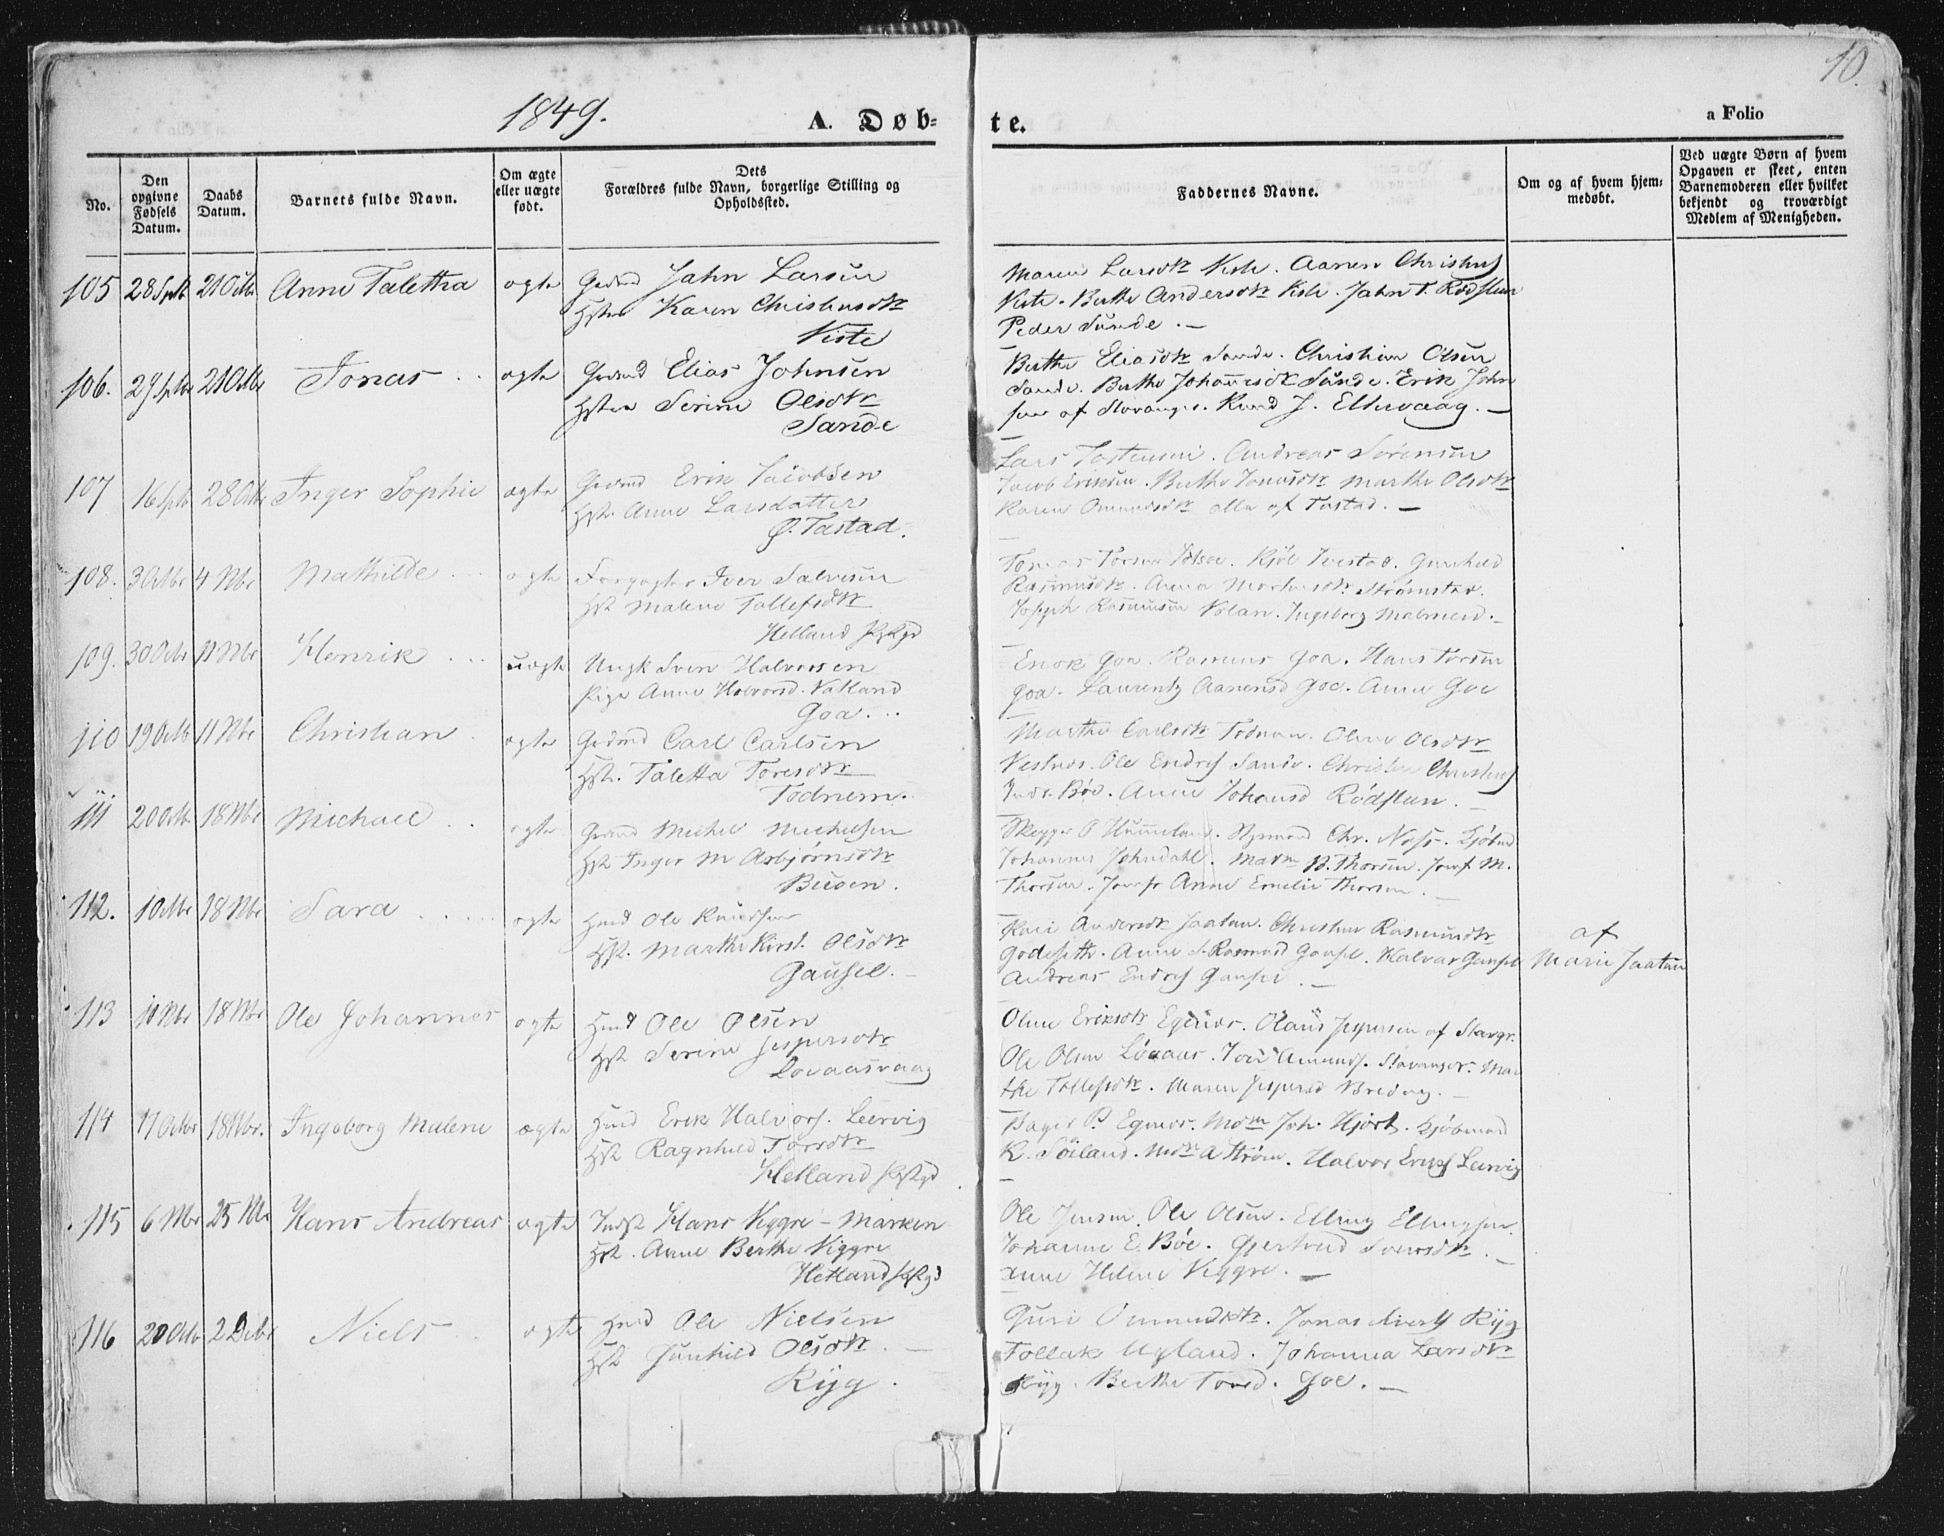 10.
1849.
A. Døb-
te.
a Folio
No.
Den opgivne Fødsels Datum.
Daabs Datum.
Barnets fulde Navn.
Om ægte eller uægte født.
Dets Forældres fulde Navn, borgerlige Stilling og Opholdssted.
Faddernes Navne.
Om og af hvem hjemmedøbt.
Ved uægte Børn af hvem Opgaven er skeet, enten Barnemoderen eller hvilket bekjendt og troværdigt Medlem af Menigheden.
105 28 Septr 21 Octbr Anne Taletha ægte Gaardmd Jahn Larsen
Hstru Karen Christensdtr
Viste
Maren Larsdtr Viste. Aanen Christens
Viste. Berthe Andersdtr Viste. Jahn T. Rødsteen
Peder Sunde. —
106. 29 Septbr 21 Octbr Jonas ægte Gaardmd Elias Johnsen
Hstru Serine Olsdtr
Sande
Berthe Eliasdtr Sande. Christian Olsen
Sande. Berthe Johannesdtr Sunde. Erik John
sen af Stavanger. Knud J. Ellevaag. —
107 16 Septr 28 Octbr Inger Sophie ægte Gaardmd Erik Jacobsen
Hst. Anne Larsdatter
Ø. Tastad.
Lars Tostensen. Andreas Sørensen
Jacob Eriksen. Berthe Jonasdtr Marthe Olsdtr
Karen Omundsdtr alle af Tastad. —
108. 3 Octbr 4 Nbr Mathilde ægte Iver Salvesen
Hst Malene Tollefsdtr
Helland
Gunhild
Rasmusdtr. Anna Strømstad.
Joseph Rasmusen. Ingeborg
109. 30 Octbr 11 Nbr Henrik uægte Ungk Sven Halvorsen
Pige Anne Halvorsd. Vatland
Goa
Enok Goa. Rasmus Goa. Hans Torsen
Goa. Aanensd Goa. Anne Goe
110 19 Octb 11 Nbr Christian ægte Gaardmd Carl Carlsen
Hst. Taletta Toresdtr
Todnem.
Marthe Carlsdtr Todnem. Oline Olsdtr
Vestnes. Ole Endres Sande. Christen Christens
Bøe. Anne Johansd Rødsteen. —
111 20 Octb 18 Nbr Michael ægte Gaardmd Michel Michelsen
Hst Inger M Asbjørnsdtr
Buøen.
Skipper Hummeland. Styrmand Chr. Næss. Kjøbmd
Johannes. Madm B. Thorsen. Jomf M.
Thorsen. Jomfr Anne Emelie Thorsen. —
112. 1 Octbr 18 Nbr Sara ægte Hmd Ole Knudsen
Hst. Marthe Kirst. Olsdtr
Gausel. —
Kari Andersdtr Jaatun. Christine Rasmusdtr
Godeseth. Anne S. Rasmusd Gausel. Halvor Gausel
Andreas Endres Gausel. —
af
Marie Jaatun
113 11 Nbr 18 Nbr Ole Johannes ægte Hmd Ole Olsen
Hst Serine Jespersdtr
Lovaasvaag
Oline Eriksdtr Egenes. Olaus Jespersen af Stavgr.
Ole Olsen Lovaas. Amunds. Stavanger. Mar
the Tollefsdtr. Maren Jespersd Bredvg. —
114 17 Octbr 18 Nbr. Ingeborg Malene ægte Hmd Erik Halvors. Leervig
Hst Ragnhild Torsdtr
Hetland
Bager P. Egenes. Mdm Joh. Hjort. Kjøbmand
K. Söiland. Mdm A Strøm. Halvor Leervig
115 6 Nbr 25 Nbr Hans Andreas ægte Indst Hans Viggre - Marken
Hst. Anne Berthe Viggre
Hetland
Ole Jensen. Ole Olsen. Elling Ellingsen.
Johanne E. Bøe. Gjertrud Svensdtr. —
Anne Helene Viggre. —
116 20 Octbr 2 Decbr Niels ægte Hmd Ole Nielsen
Hst Gunhild Olsdtr. —
Ryg.
Guri Omundsdtr. Jonas Ryg
Tollak Ugland. Johanna Larsdtr
Ryg. Berthe Toresd. Goe. —